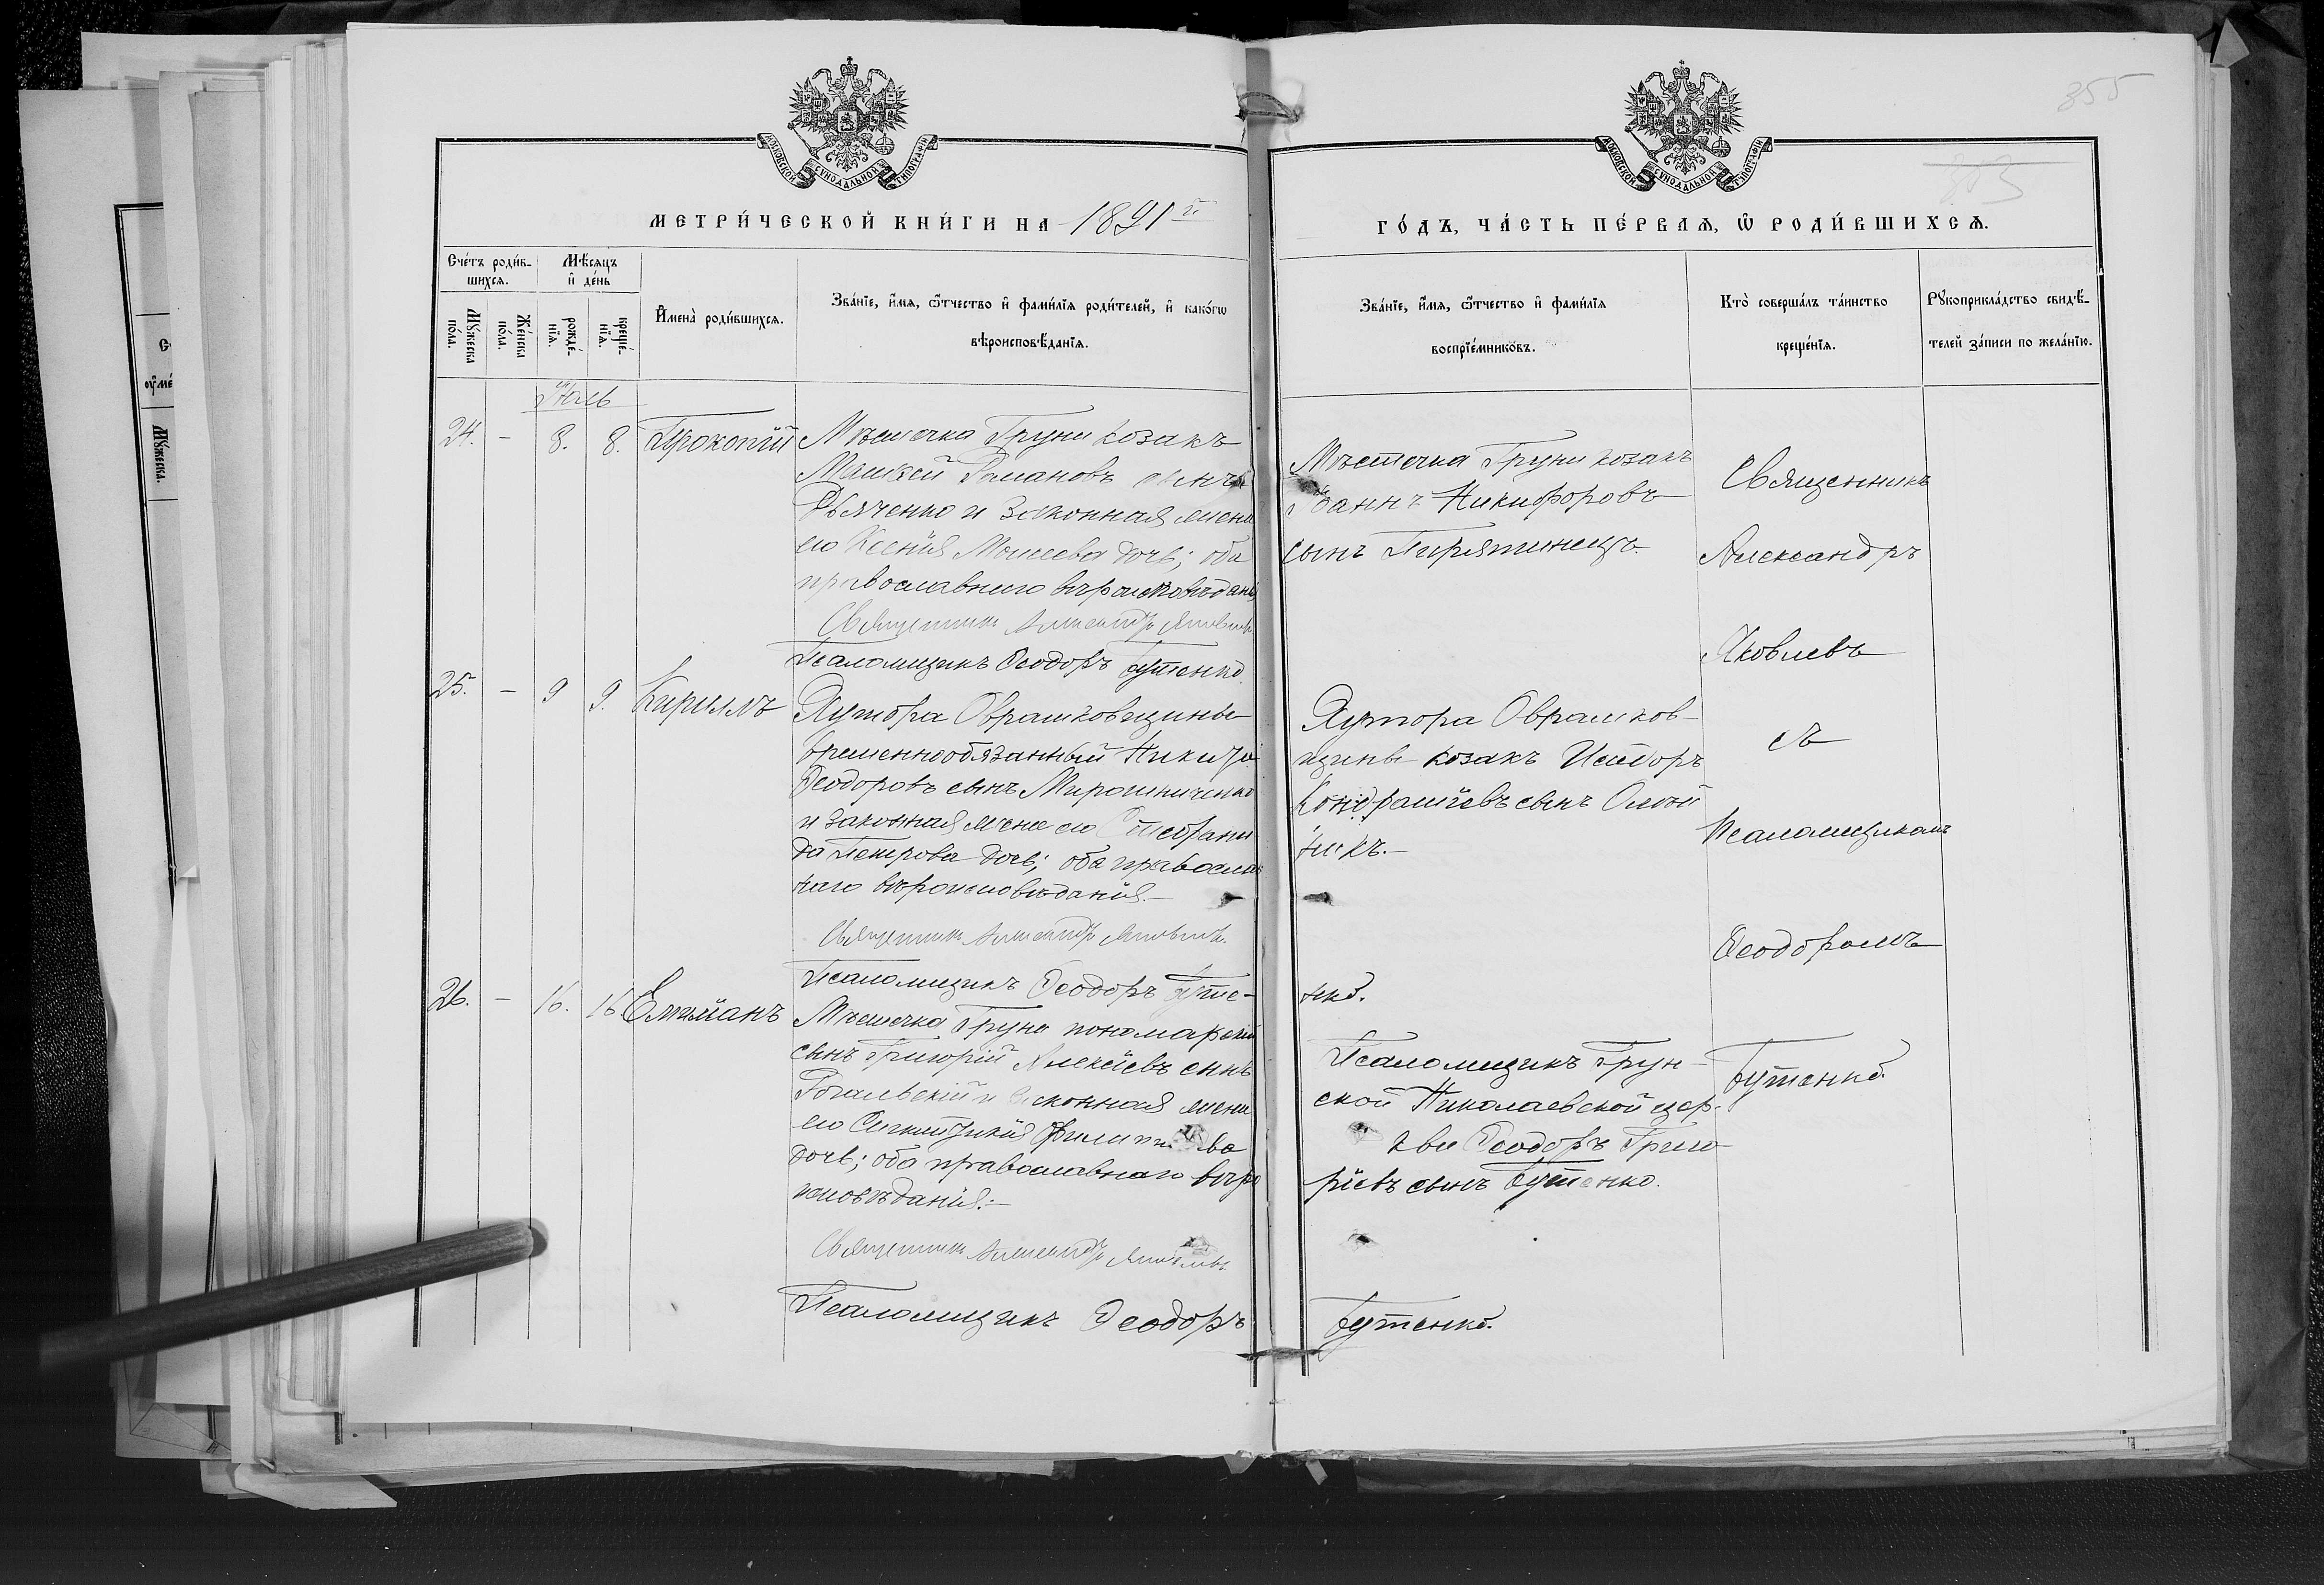 355
303
МОСКОВСКОЙ СѴНОДАЛЬНОЙ ТИПОГРАФІИ
МОСКОВСКОЙ СѴНОДАЛЬНОЙ ТИПОГРАФІИ
МЕТРИ́ЧЕСКОЙ КНИ́ГИ НА 1891 й
ГО́ДЪ, ЧА́СТЬ ПЕ́РВАѦ, Ѿ РОДИ́ВШИХСѦ.
Сче́тъ роди́в-
шихсѧ.
Мѣ́сѧцъ
и҆ де́нь
Мꙋ́жеска
по́ла.
Же́нска
по́ла.
рожде́-
нїѧ.
креще́-
нїѧ.
И҆мена̀ роди́вшихсѧ.
Зва́нїе, и҆́мѧ, ѻ҆́тчество и҆ фами́лїѧ роди́телей, и҆ како́гѡ
вѣроисповѣ́данїѧ.
Зва́нїе, и҆́мѧ, ѻ҆́тчество и҆ фами́лїѧ
воспрїе́мниковъ.
Кто̀ соверша́лъ та́инство
креще́нїѧ.
Рꙋкоприкла́дство свидѣ́-
телей за́писи по жела́нїю.
Іюль
24. - 8. 8. Прокопій
Мѣстечка Груни козакъ
Моисей Романовъ сынъ
Дьяченко и законная жена
его Ксенія Моисеева дочь; оба
православнаго вѣроисповѣданія
Священникъ Александръ Яковлевъ
Псаломщикъ Ѳеодоръ Бутенко.
Мѣстечка Груни козакъ
Іоаннъ Никифоровъ
сынъ Пирятинецъ.
Священникъ
Александръ
Яковлевъ
съ
Псаломщикомъ
Ѳеодоромъ
Бутенко.
25. - 9 9. Кириллъ
Хутора Оврашковщины
временнообязанный Никита
Ѳеодоровъ сынъ Мирошниченко
и законная жена его Стефани
да Петрова дочь; оба православ
наго вѣроисповѣданія.-
Священникъ Александръ Яковлевъ.
Псаломщикъ Ѳеодоръ Буте-
Хутора Оврашков-
щины козакъ Исидоръ
Кондратіевъ сынъ Олей
никъ.-
нко.
26. - 16. 16 Емиліанъ
Мѣстечка Груни пономарскій
сынъ Григорій Алексіевъ сынъ
Рогальскій и законная жена
его Синклитикія Филиппова
дочь; оба православнаго вѣро
исповѣданія.-
Священникъ Александръ Яковлевъ
Псаломщикъ Ѳеодоръ
Псаломщикъ Грун-
ской Николаевской цер-
кви Ѳеодоръ Григо
ріевъ сынъ Бутенко.
Бутенко.
Мꙋ́жеска.